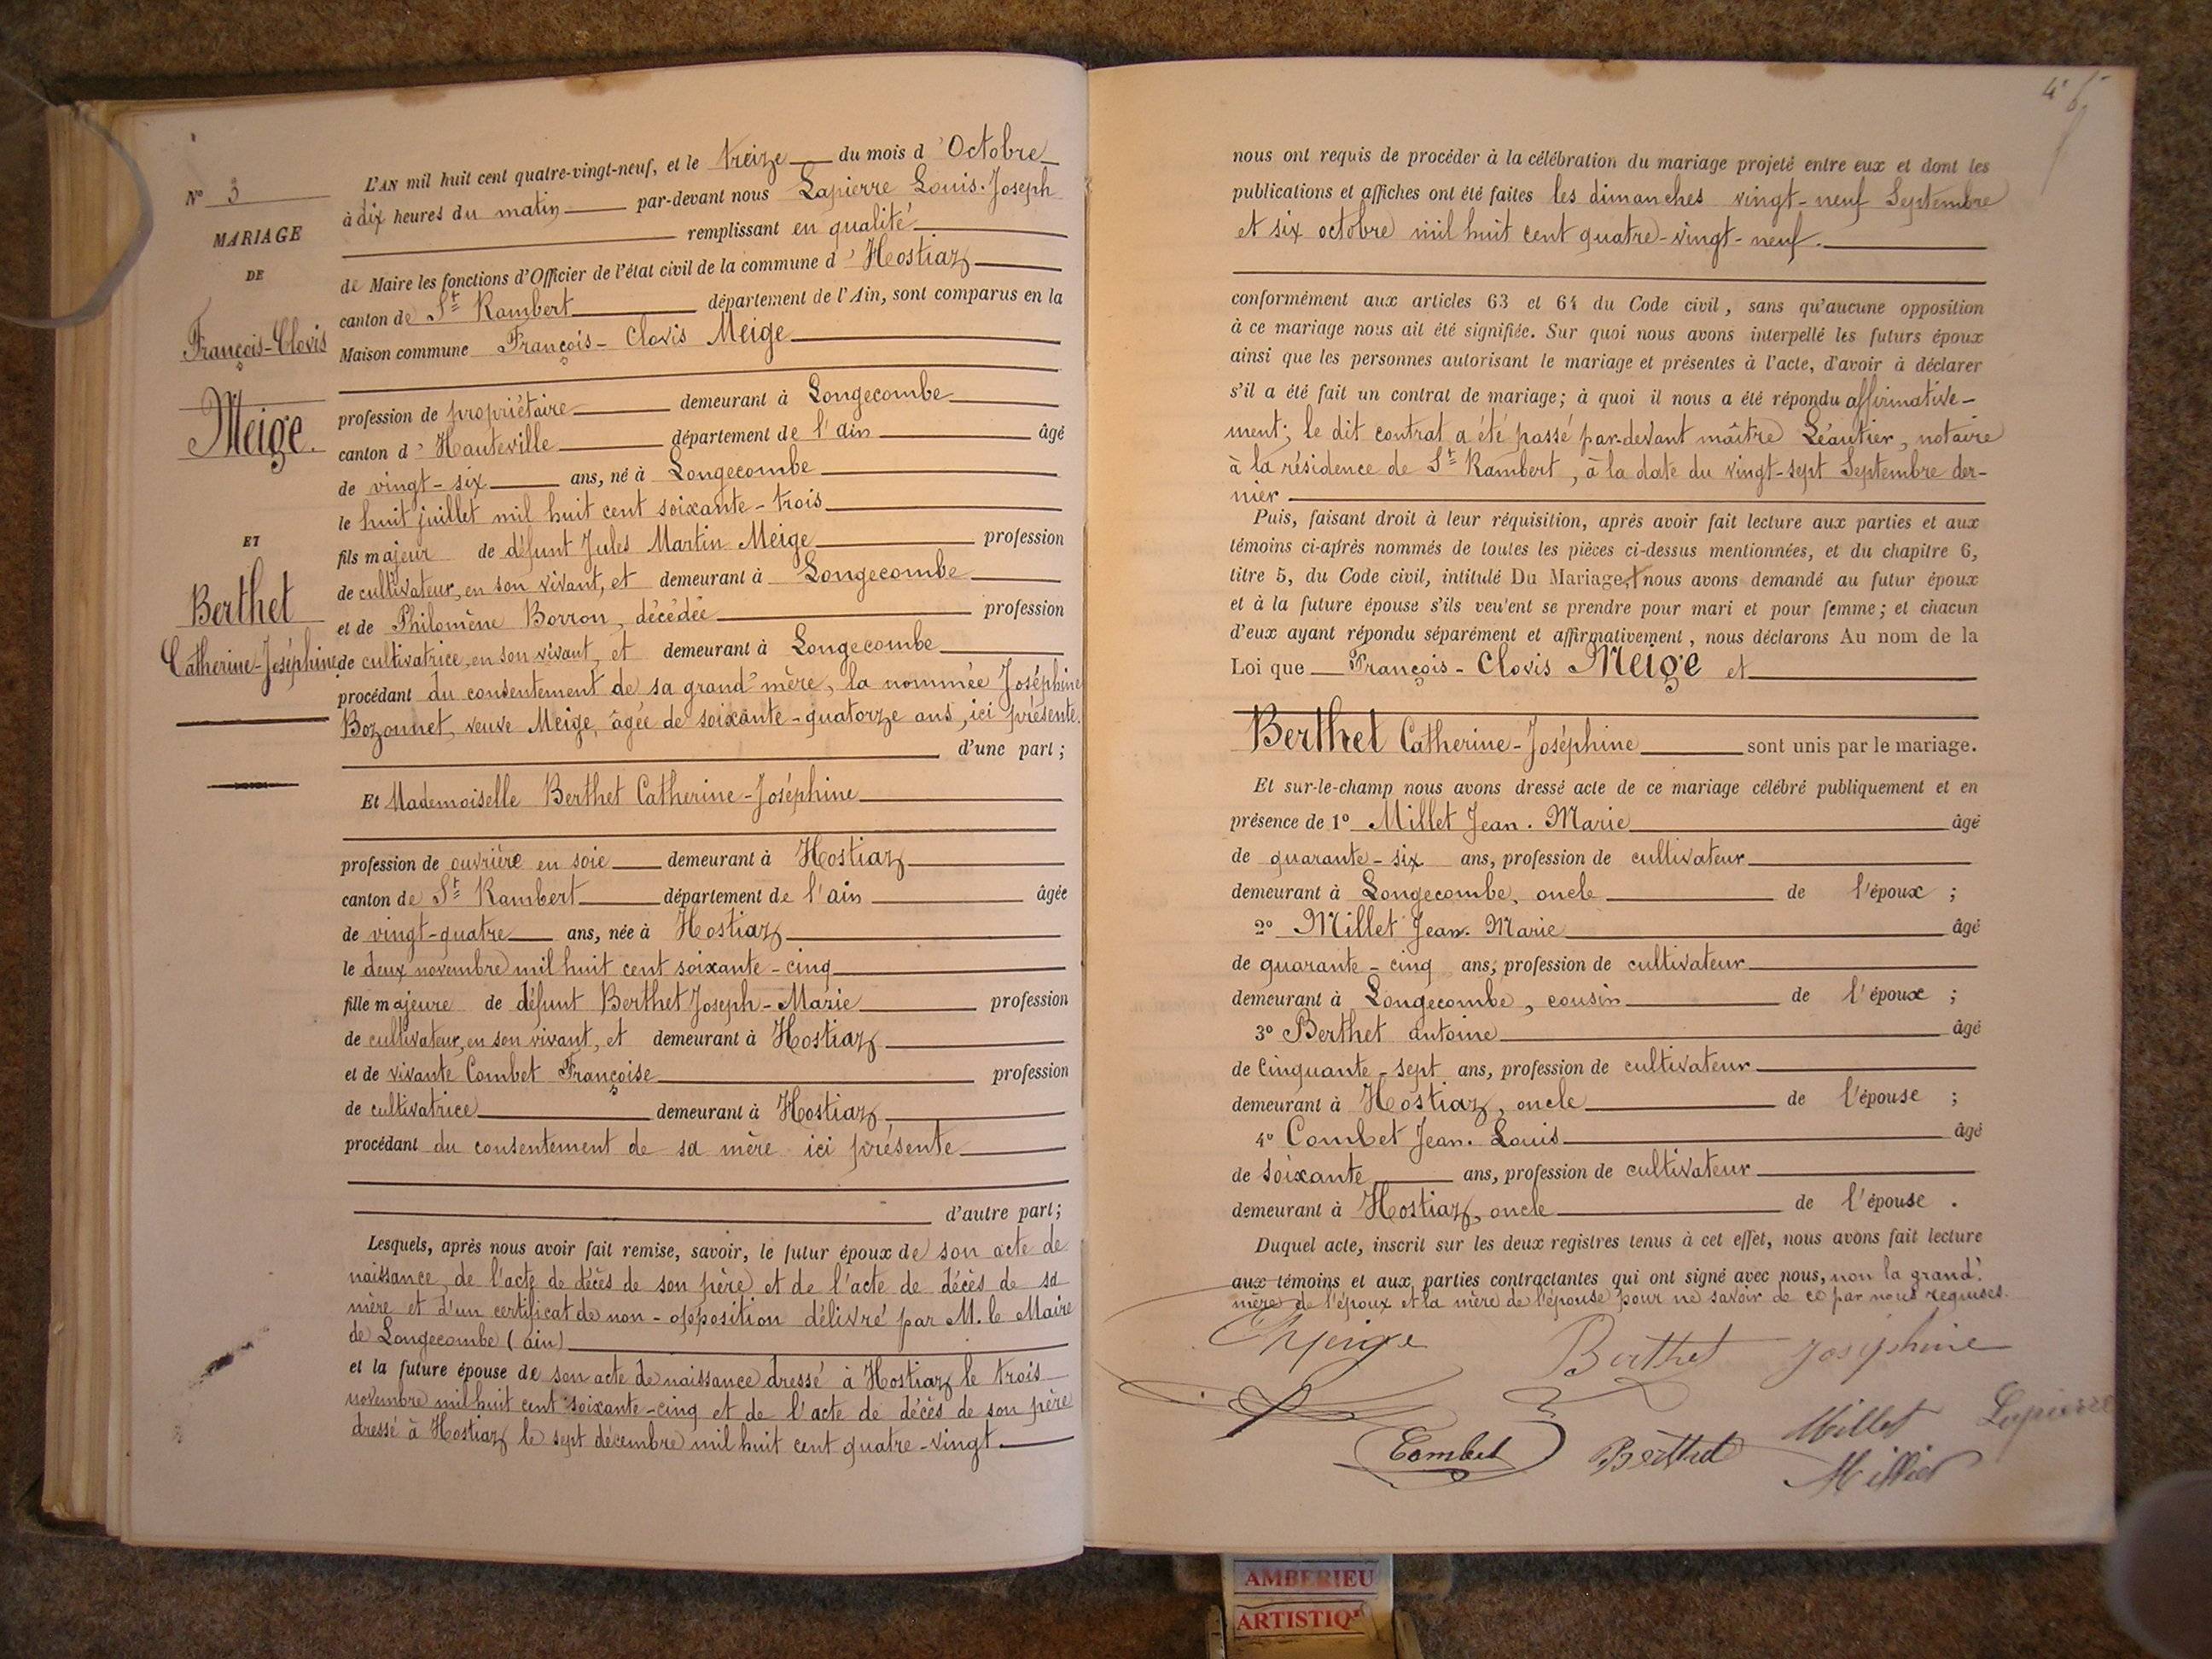 N° 3
MARIAGE
DE
François-Clovis
Meige.
ET
Berthet
Catherine-Joséphine
L'AN mil huit cent quatre-vingt-neuf, et le treize du mois d'Octobre
à dix heures du matin par-devant nous Lapierre Louis-Joseph
remplissant en qualité
de Maire les fonctions d'Officier de l'état civil de la commune d'Hostiaz
canton de St Rambert département de l'Ain, sont comparus en la
Maison commune François-Clovis Meige
profession de propriétaire demeurant à Longecombe
canton d'Hauteville département de l'ain âgé
de vingt-six ans, né à Longecombe
le huit juillet mil huit cent soixante-trois
fils majeur de défunt Jules Martin Meige profession
de cultivateur, en son vivant, et demeurant à Longecombe
et de Philomène Borron, décédée profession
de cultivatrice, en son vivant, et demeurant à Longecombe
procédant du consentement de sa grand'mère, la nommée Joséphine
Bozonnet, veuve Meige, âgée de soixante-quatorze ans, ici présente.
d'une part;
Et Mademoiselle Berthet Catherine-Joséphine
profession de ouvrière en soie demeurant à Hostiaz
canton de St Rambert département de l'ain âgée
de vingt-quatre ans, née à Hostiaz
le deux novembre mil huit cent soixante-cinq
fille majeure de défunt Berthet Joseph-Marie profession
de cultivateur, en son vivant, et demeurant à Hostiaz
et de vivante Combet Françoise profession
de cultivatrice demeurant à Hostiaz
procédant du consentement de sa mère ici présente
d'autre part;
Lesquels, après nous avoir fait remise, savoir, le futur époux de son acte de
naissance, de l'acte de décès de son père et de l'acte de décès de sa
mère et d'un certificat de non-opposition délivré par M. le Maire
de Longecombe (ain)
et la future épouse de son acte de naissance dressé à Hostiaz le trois
novembre mil huit cent soixante-cinq et de l'acte de décès de son père
dressé à Hostiaz le sept décembre mil huit cent quatre-vingt
nous ont requis de procéder à la célébration du mariage projeté entre eux et dont les
publications et affiches ont été faites les dimanches vingt-neuf Septembre
et six octobre mil huit cent quatre-vingt-neuf.
conformément aux articles 63 et 64 du Code civil, sans qu'aucune opposition
à ce mariage nous ait été signifiée. Sur quoi nous avons interpellé les futurs époux
ainsi que les personnes autorisant le mariage et présentes à l'acte, d'avoir à déclarer
s'il a été fait un contrat de mariage; à quoi il nous a été répondu affirmative-
ment; le dit contrat a été passé par-devant maître Léautier, notaire
à la résidence de St Rambert, à la date du vingt-sept Septembre der-
nier
Puis, faisant droit à leur réquisition, après avoir fait lecture aux parties et aux
témoins ci-après nommés de toutes les pièces ci-dessus mentionnées, et du chapitre 6,
titre 5, du Code civil, intitulé Du Mariage, nous avons demandé au futur époux
et à la future épouse s'ils veulent se prendre pour mari et pour femme; et chacun
d'eux ayant répondu séparément et affirmativement, nous déclarons Au nom de la
Loi que François-Clovis Meige et
Berthet Catherine-Joséphine sont unis par le mariage.
Et sur-le-champ nous avons dressé acte de ce mariage célébré publiquement et en
présence de 1° Millet Jean-Marie âgé
de quarante-six ans, profession de cultivateur
demeurant à Longecombe, oncle de l'époux;
2° Millet Jean-Marie âgé
de quarante-cinq ans, profession de cultivateur
demeurant à Longecombe, cousin de l'époux;
3° Berthet antoine âgé
de cinquante-sept ans, profession de cultivateur
demeurant à Hostiaz, oncle de l'épouse;
4° Combet Jean-Louis âgé
de soixante ans, profession de cultivateur
demeurant à Hostiaz, oncle de l'épouse.
Duquel acte, inscrit sur les deux registres tenus à cet effet, nous avons fait lecture
aux témoins et aux parties contractantes qui ont signé avec nous, non la grand'
mère de l'époux et la mère de l'épouse pour ne savoir de ce par nous requises.
Meige Berthet Joséphine
Millet Lapierre
Combet Berthet
AMBERIEU
ARTISTIQ